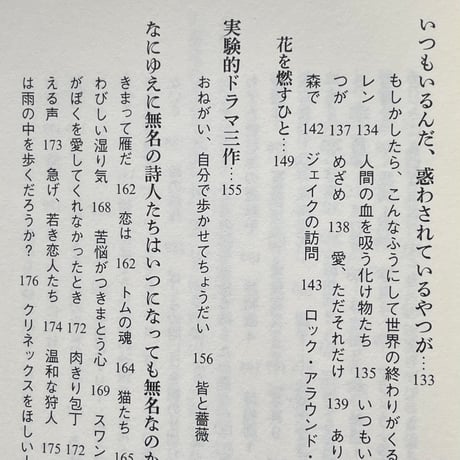 いつもいるんだ、惑わされているやつが…133
もしかしたら、こんなふうにして世界の終わりがくる
レン 134 人間の血を吸う化け物たち 135 いつもい
つが 137 めざめ 138 愛、ただそれだけ 139 あり
森で 142 ジェイクの訪問 143 ロック・アラウンド・
花を燃すひと…149
実験的ドラマ三作…155
おねがい、自分で歩かせてちょうだい 156 皆と薔薇
なにゆえに無名の詩人たちはいつになっても無名なのか
きまって雁だ 162 恋は 162 トムの魂 164 猫たち 165
わびしい湿り気 168 苦悩がつきまとう心 169 スワン
がぼくを愛してくれなかったとき 172 肉きり包丁 172
える声 173 急げ、若き恋人たち 174 温和な狩人 175
は雨の中を歩くだろうか? 176 クリネックスをほしい